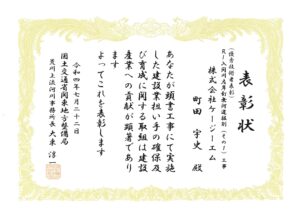 表彰状
(優秀技術者表彰)
株式会社ケージーエム
町田 宇史 殿
あなたが頭書工事にて実施
した建設業担い手の確保及
び育成に関する取組は建設
産業への貢献が顕著であり
ます
よってこれを表彰します
令和四年七月二十二日
国土交通省関東地方整備局
荒川上流河川事務所長 大束 淳一